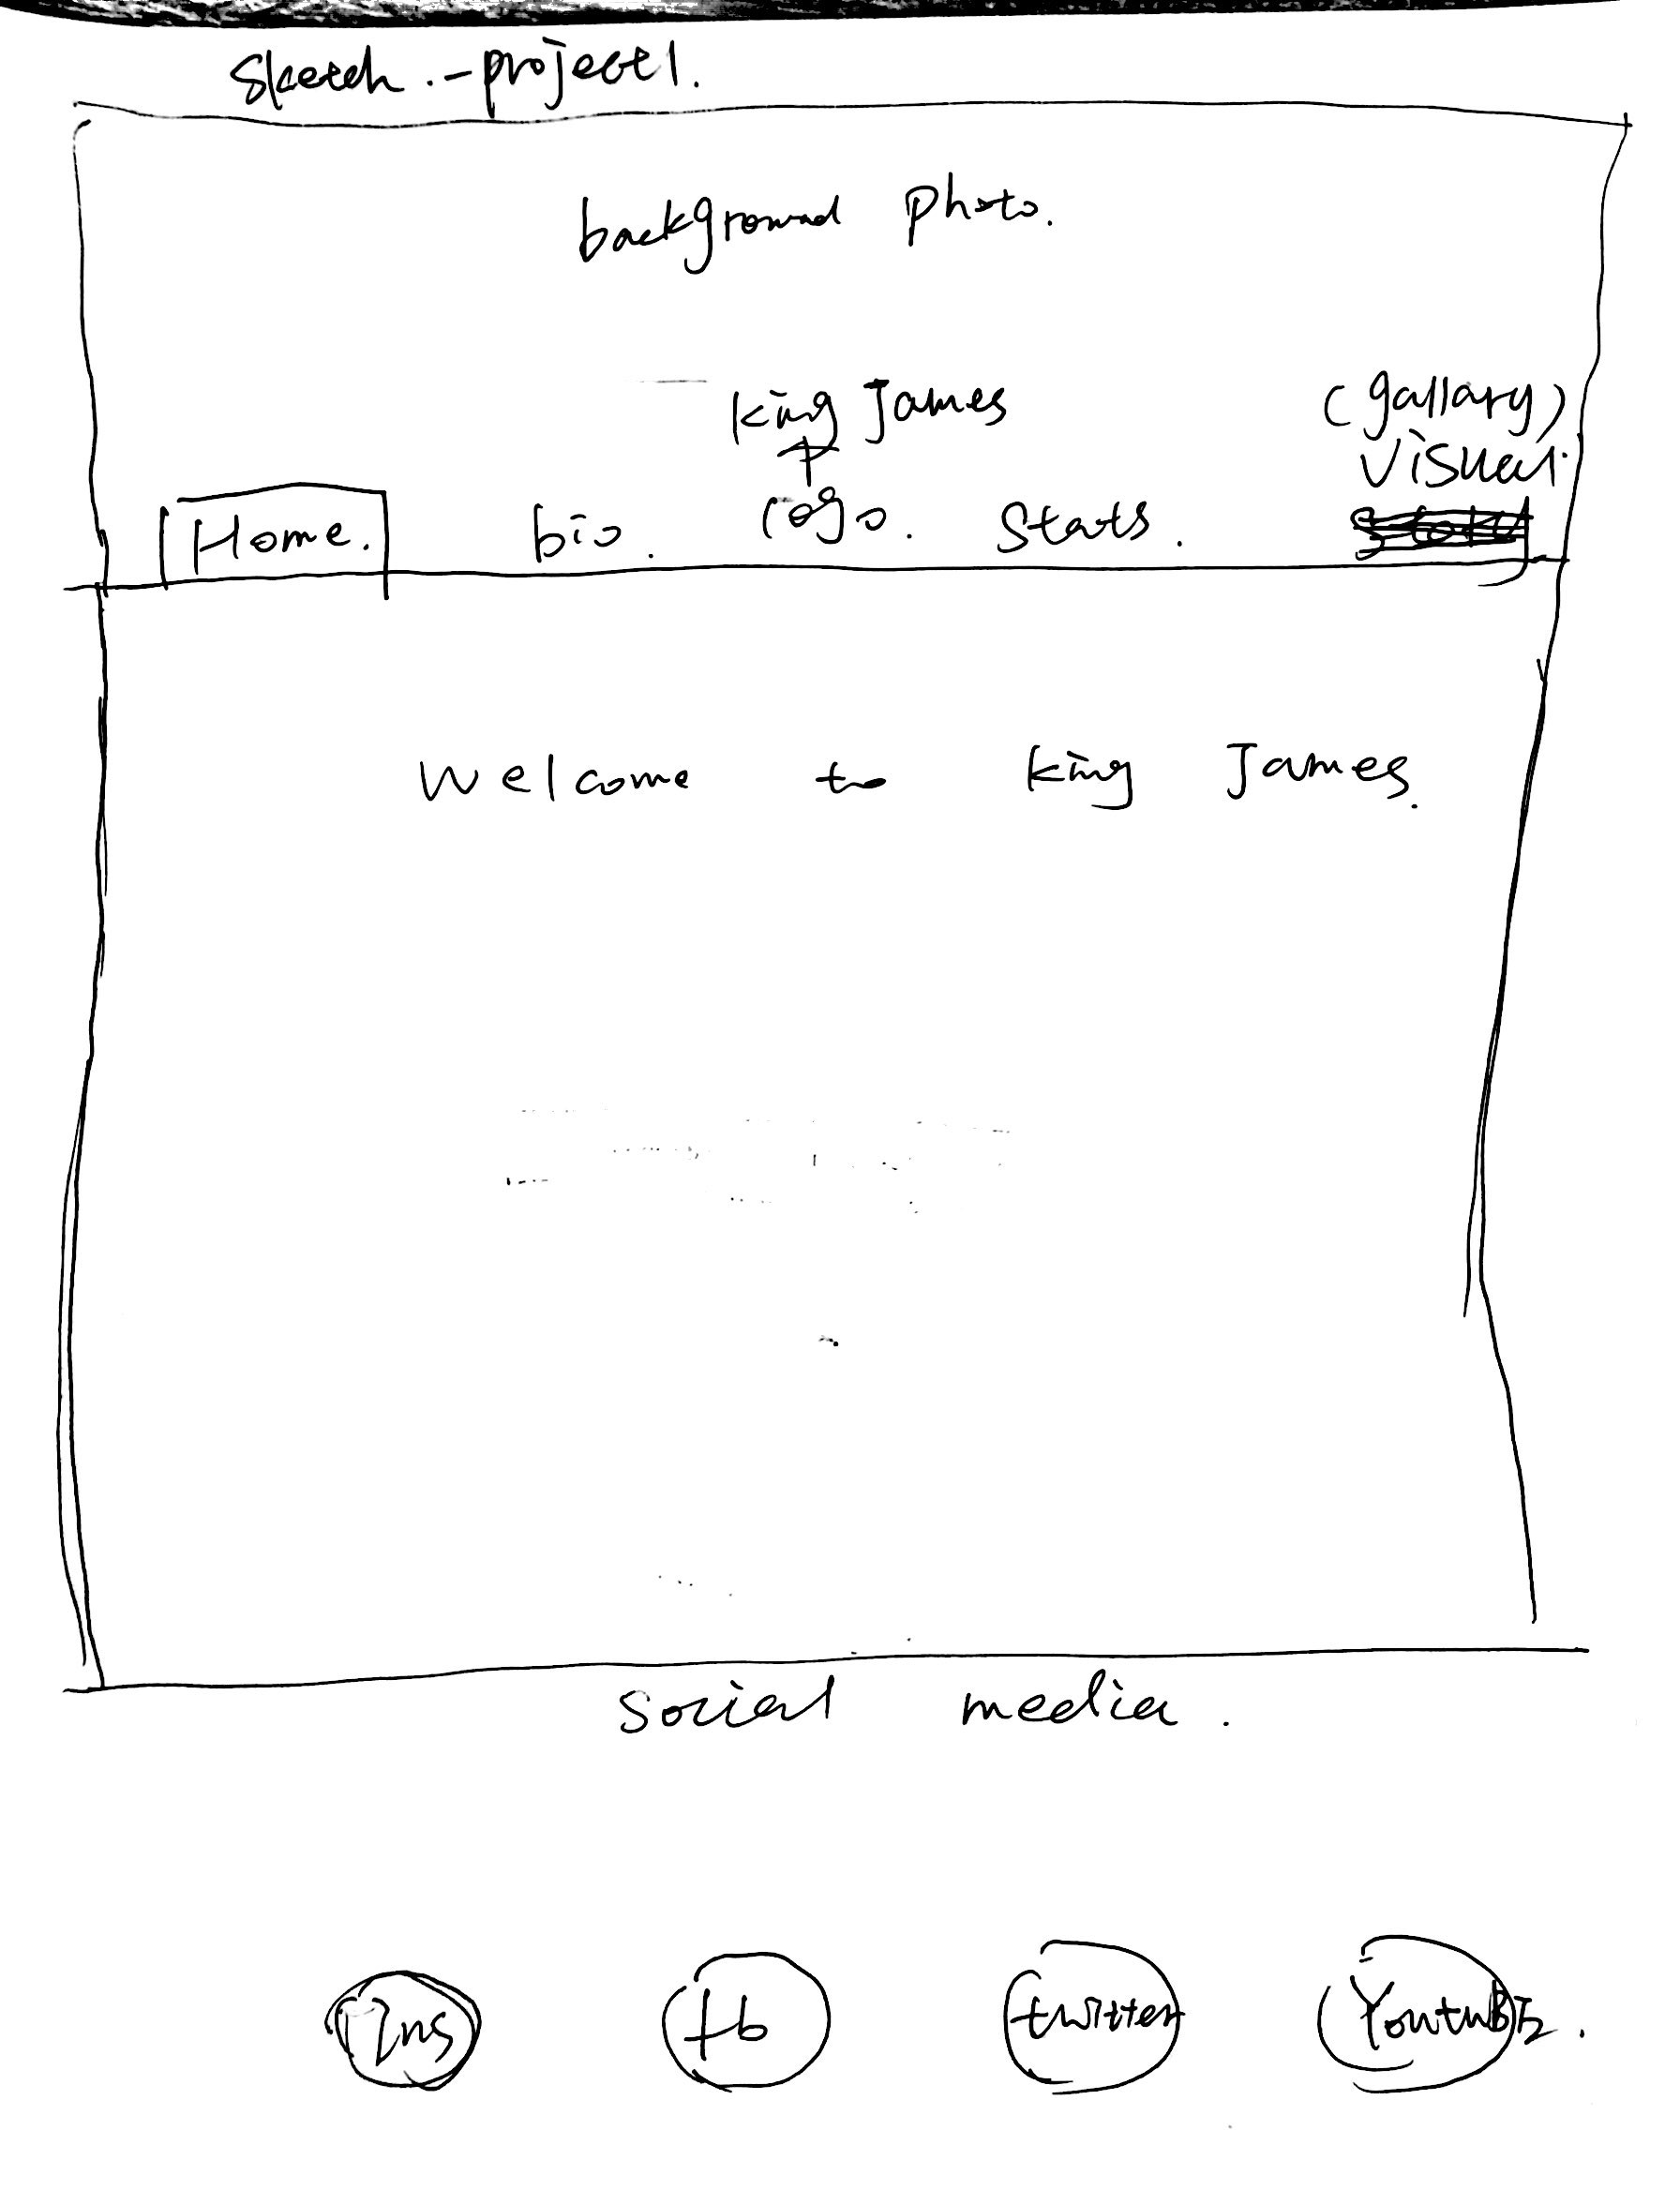 Sketch.-project1.
background photo.
king James
(gallary)
visual.
Home. bio. logo. Stats.
Welcome to king James.
social media.
Ins fb twitter YoutuBE.